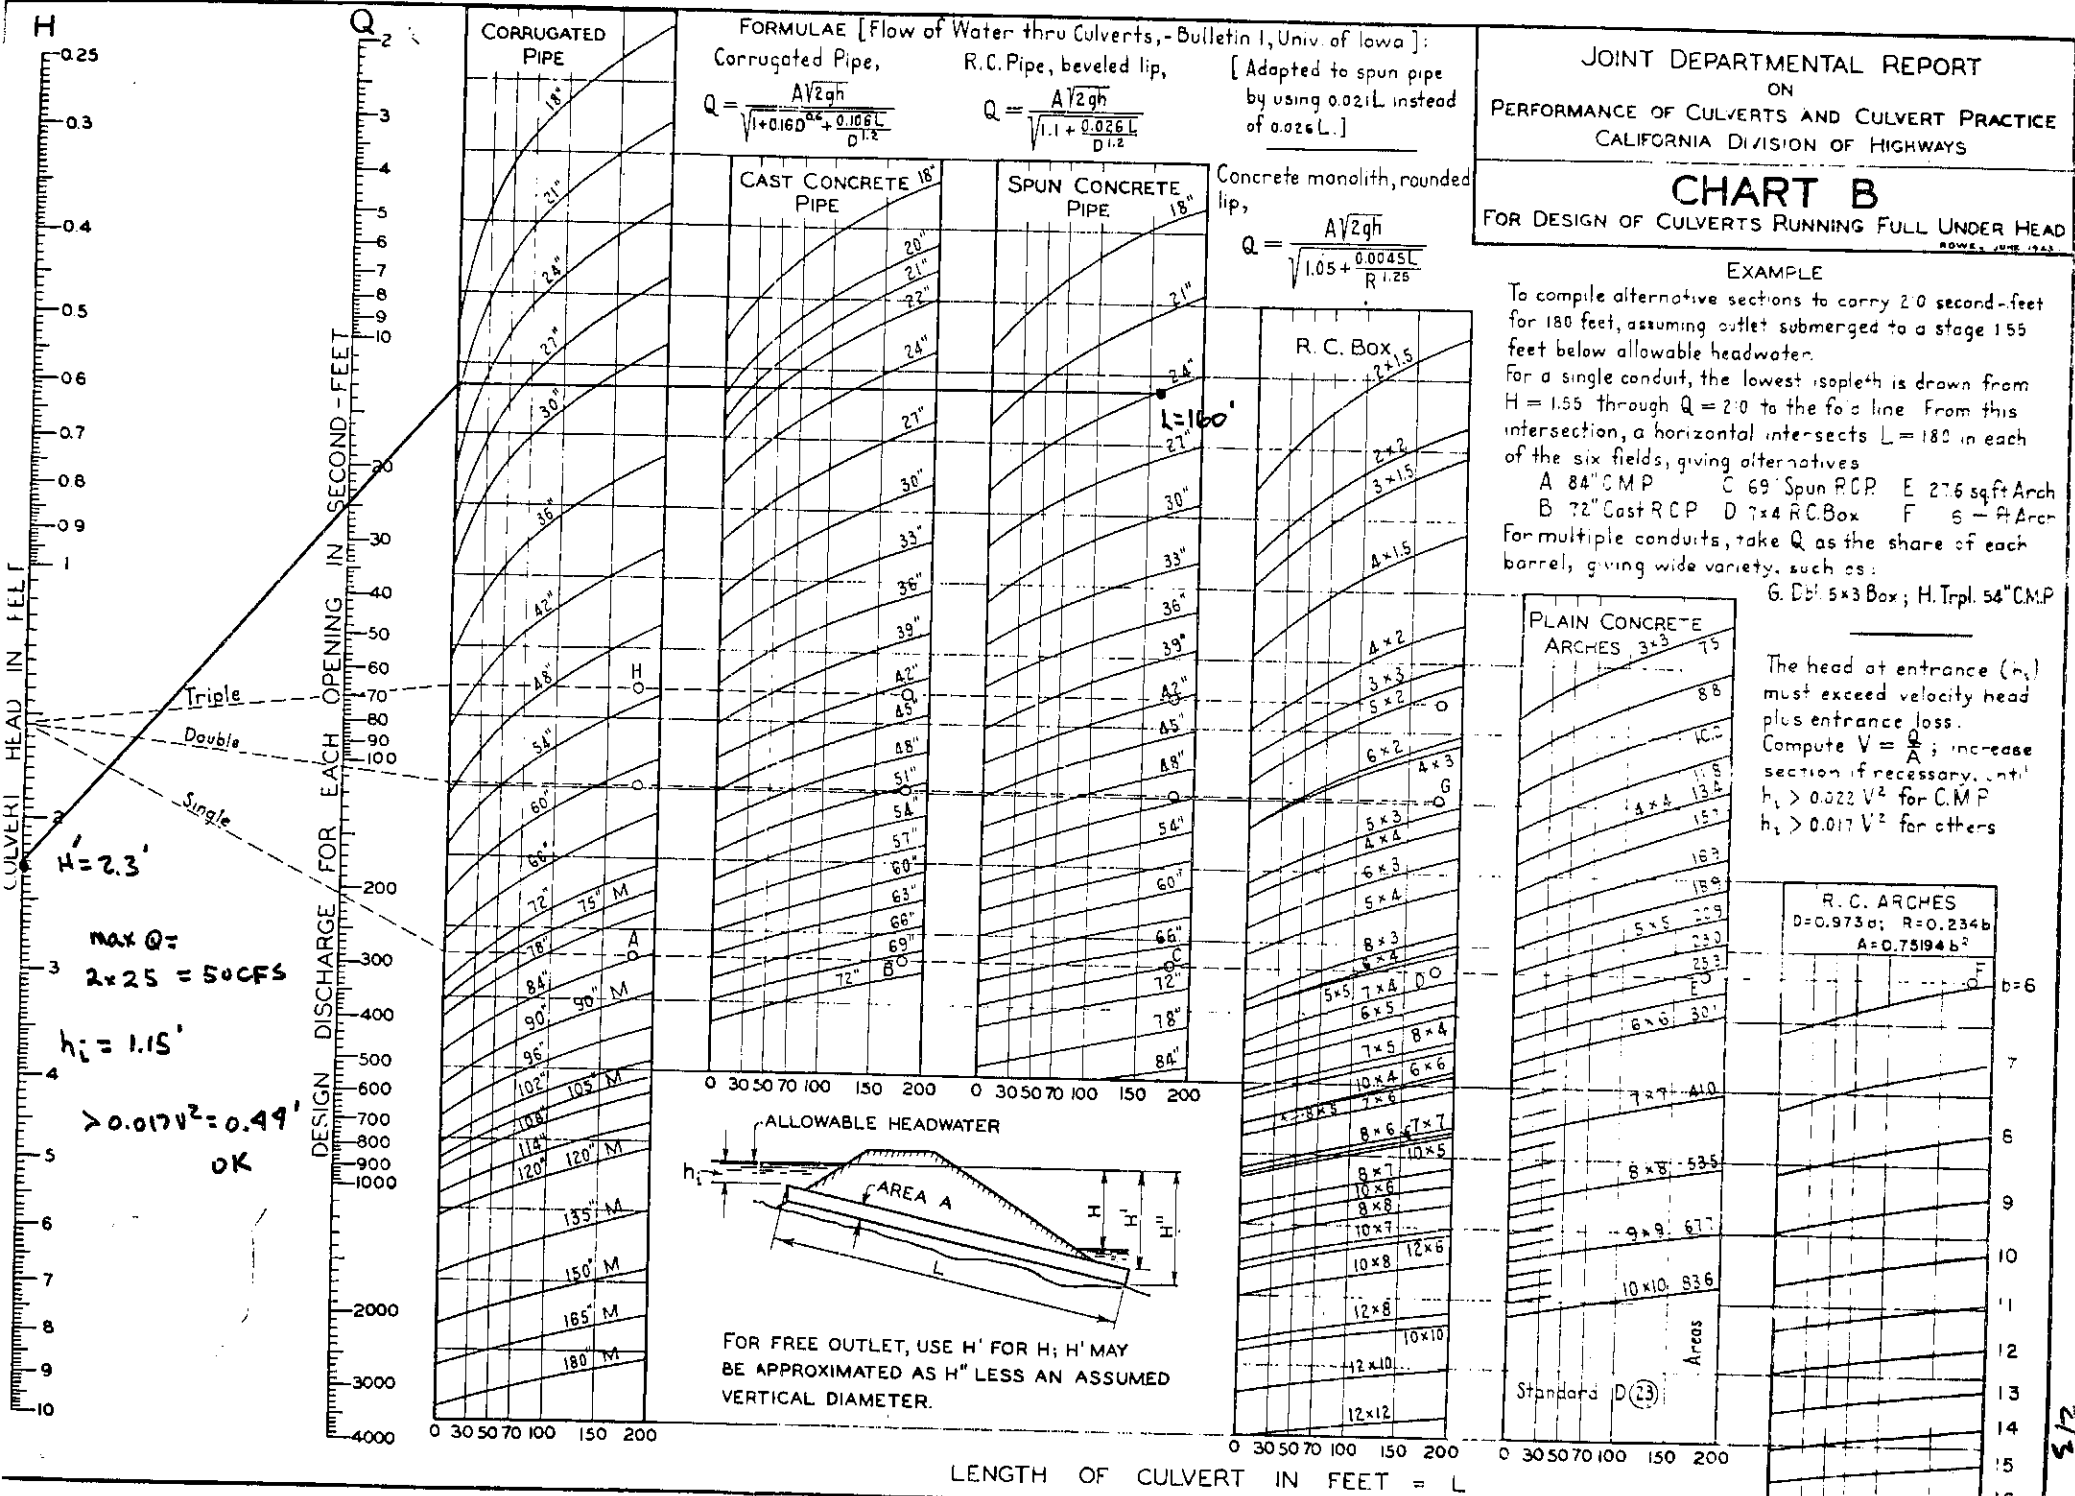 H
Q
0.25
0.3
0.4
0.5
0.6
0.7
0.8
0.9
1
2
3
4
5
6
7
8
9
10
CULVERT HEAD IN FEET
2
3
4
5
6
7
8
9
10
20
30
40
50
60
70
80
90
100
200
300
400
500
600
700
800
900
1000
2000
3000
4000
DESIGN DISCHARGE FOR EACH OPENING IN SECOND-FEET
Triple
Double
Single
H'=2.3'
max Q=
2x25 = 50CFS
hi = 1.15'
>0.017V²=0.49'
OK
CORRUGATED
PIPE
18"
21"
24"
27"
30"
36"
42"
48"
H
54"
60"
66"
72" 75" M
78" A
84"
90" 90" M
96"
102" 105" M
108"
114"
120" 120" M
135" M
150" M
165" M
180" M
0 30 50 70 100 150 200
FORMULAE [Flow of Water thru Culverts,-Bulletin 1, Univ. of Iowa]:
Corrugated Pipe,
Q = A√2gh / √1+0.16D^0.6 + 0.106L/D^1.2
R.C. Pipe, beveled lip,
Q = A√2gh / √1.1 + 0.026L/D^1.2
[Adapted to spun pipe
by using 0.021L instead
of 0.026L.]
Concrete monolith, rounded
lip,
Q = A√2gh / √1.05 + 0.0045L/R^1.25
CAST CONCRETE
PIPE
18"
20"
21"
22"
24"
27"
30"
33"
36"
39"
42"
45"
48"
51"
54"
57"
60"
63"
66"
69"
72" B
0 30 50 70 100 150 200
SPUN CONCRETE
PIPE
18"
21"
24"
L=160'
27"
30"
33"
36"
39"
42"
45"
48"
54"
60"
66"
C
72"
78"
84"
0 30 50 70 100 150 200
R. C. BOX
2×1.5
2×2
3×1.5
4×1.5
4×2
3×3
5×2
6×2
4×3
G
5×3
4×4
6×3
5×4
8×3
6×4
5×5 7×4 D
6×5
8×4
7×5
10×4 6×6
7×6
8×6 7×7
10×5
8×7
10×6
8×8
10×7
12×6
10×8
12×8
10×10
12×10
12×12
0 30 50 70 100 150 200
ALLOWABLE HEADWATER
hi
AREA A
L
H
H'
H"
FOR FREE OUTLET, USE H' FOR H; H' MAY
BE APPROXIMATED AS H" LESS AN ASSUMED
VERTICAL DIAMETER.
LENGTH OF CULVERT IN FEET = L
JOINT DEPARTMENTAL REPORT
ON
PERFORMANCE OF CULVERTS AND CULVERT PRACTICE
CALIFORNIA DIVISION OF HIGHWAYS
CHART B
FOR DESIGN OF CULVERTS RUNNING FULL UNDER HEAD
EXAMPLE
To compile alternative sections to carry second-feet
for 180 feet, assuming outlet submerged to a stage 1.55
feet below allowable headwater.
For a single conduit, the lowest isopleth is drawn from
H = 1.55 through Q = to the line From this
intersection, a horizontal intersects L = 180 in each
of the six fields, giving alternatives
A 84" C M P C 69" Spun R C P E 27.6 sq.ft Arch
B 72" Cast R C P D 7×4 R.C. Box F 6 - ft Arch
For multiple conduits, take Q as the share of each
barrel, giving wide variety, such as:
G. Dbl. 5×3 Box; H. Trpl. 54" C.M.P
The head at entrance (hi)
must exceed velocity head
plus entrance loss.
Compute V = Q/A; increase
section if necessary, until
hi > 0.022 V² for C.M P
hi > 0.017 V² for others
PLAIN CONCRETE
ARCHES
3×3 7.5
8.8
4×4 13.4
5×5
E
6×6
7×7 41.0
8×8 53.5
9×9 67.7
10×10 83.6
Areas
Standard D(23)
0 30 50 70 100 150 200
R. C. ARCHES
D=0.973b; R=0.234b
A=0.75194b²
F
b=6
7
8
9
10
11
12
13
14
15